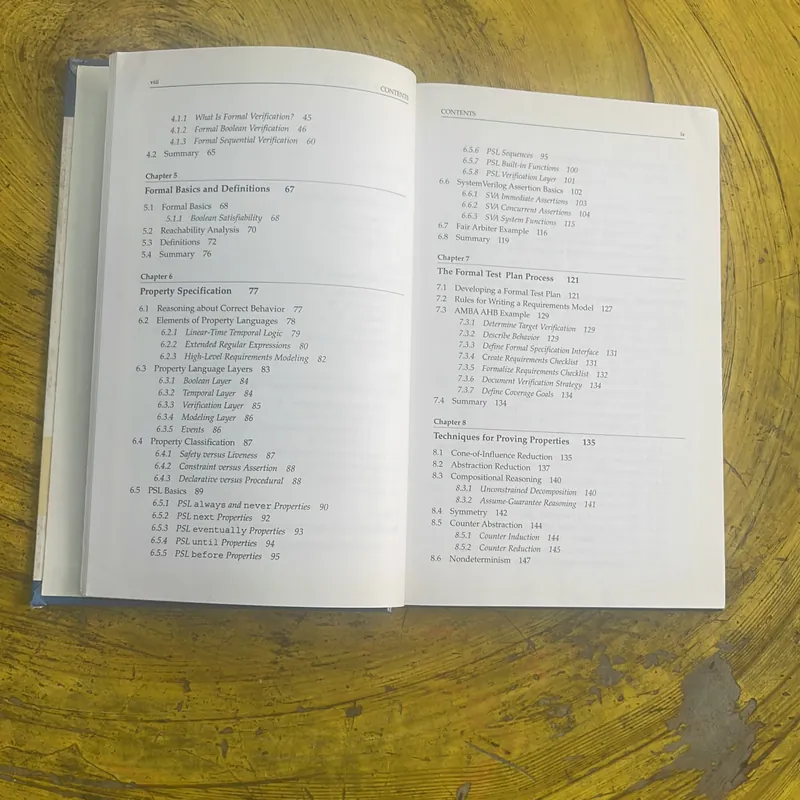 viii
CONTENTS
4.1.1 What Is Formal Verification? 45
4.1.2 Formal Boolean Verification 46
4.1.3 Formal Sequential Verification 60
4.2 Summary 65
Chapter 5
Formal Basics and Definitions 67
5.1 Formal Basics 68
5.1.1 Boolean Satisfiability 68
5.2 Reachability Analysis 70
5.3 Definitions 72
5.4 Summary 76
Chapter 6
Property Specification 77
6.1 Reasoning about Correct Behavior 77
6.2 Elements of Property Languages 78
6.2.1 Linear-Time Temporal Logic 79
6.2.2 Extended Regular Expressions 80
6.2.3 High-Level Requirements Modeling 82
6.3 Property Language Layers 83
6.3.1 Boolean Layer 84
6.3.2 Temporal Layer 84
6.3.3 Verification Layer 85
6.3.4 Modeling Layer 86
6.3.5 Events 86
6.4 Property Classification 87
6.4.1 Safety versus Liveness 87
6.4.2 Constraint versus Assertion 88
6.4.3 Declarative versus Procedural 88
6.5 PSL Basics 89
6.5.1 PSL always and never Properties 90
6.5.2 PSL next Properties 92
6.5.3 PSL eventually Properties 93
6.5.4 PSL until Properties 94
6.5.5 PSL before Properties 95
CONTENTS
ix
6.5.6 PSL Sequences 95
6.5.7 PSL Built-in Functions 100
6.5.8 PSL Verification Layer 101
6.6 SystemVerilog Assertion Basics 102
6.6.1 SVA Immediate Assertions 103
6.6.2 SVA Concurrent Assertions 104
6.6.3 SVA System Functions 115
6.7 Fair Arbiter Example 116
6.8 Summary 119
Chapter 7
The Formal Test Plan Process 121
7.1 Developing a Formal Test Plan 121
7.2 Rules for Writing a Requirements Model 127
7.3 AMBA AHB Example 129
7.3.1 Determine Target Verification 129
7.3.2 Describe Behavior 129
7.3.3 Define Formal Specification Interface 131
7.3.4 Create Requirements Checklist 131
7.3.5 Formalize Requirements Checklist 132
7.3.6 Document Verification Strategy 134
7.3.7 Define Coverage Goals 134
7.4 Summary 134
Chapter 8
Techniques for Proving Properties 135
8.1 Cone-of-Influence Reduction 135
8.2 Abstraction Reduction 137
8.3 Compositional Reasoning 140
8.3.1 Unconstrained Decomposition 140
8.3.2 Assume-Guarantee Reasoning 141
8.4 Symmetry 142
8.5 Counter Abstraction 144
8.5.1 Counter Induction 144
8.5.2 Counter Reduction 145
8.6 Nondeterminism 147